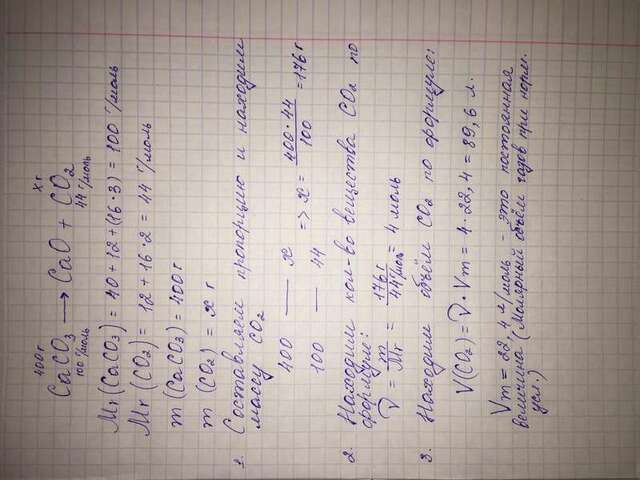 400г х г
CaCO3 → CaO + CO2
100 г/моль 44 г/моль
Mr (CaCO3) = 40 + 12 + (16 · 3) = 100 г/моль
Mr (CO2) = 12 + 16 · 2 = 44 г/моль
m (CaCO3) = 400 г
m (CO2) = х г
1. Составляем пропорцию и находим
массу CO2
400 — х
=> х = 400 · 44 / 100 = 176 г
100 — 44
2. Находим кол-во вещества CO2 по
формуле:
ν = m / Mr = 176 г / 44 г/моль = 4 моль
3. Находим объём CO2 по формуле:
V(CO2) = ν · Vm = 4 · 22,4 = 89,6 л.
Vm = 22,4 л/моль - это постоянная
величина (Молярный объём газов при норм.
усл.)